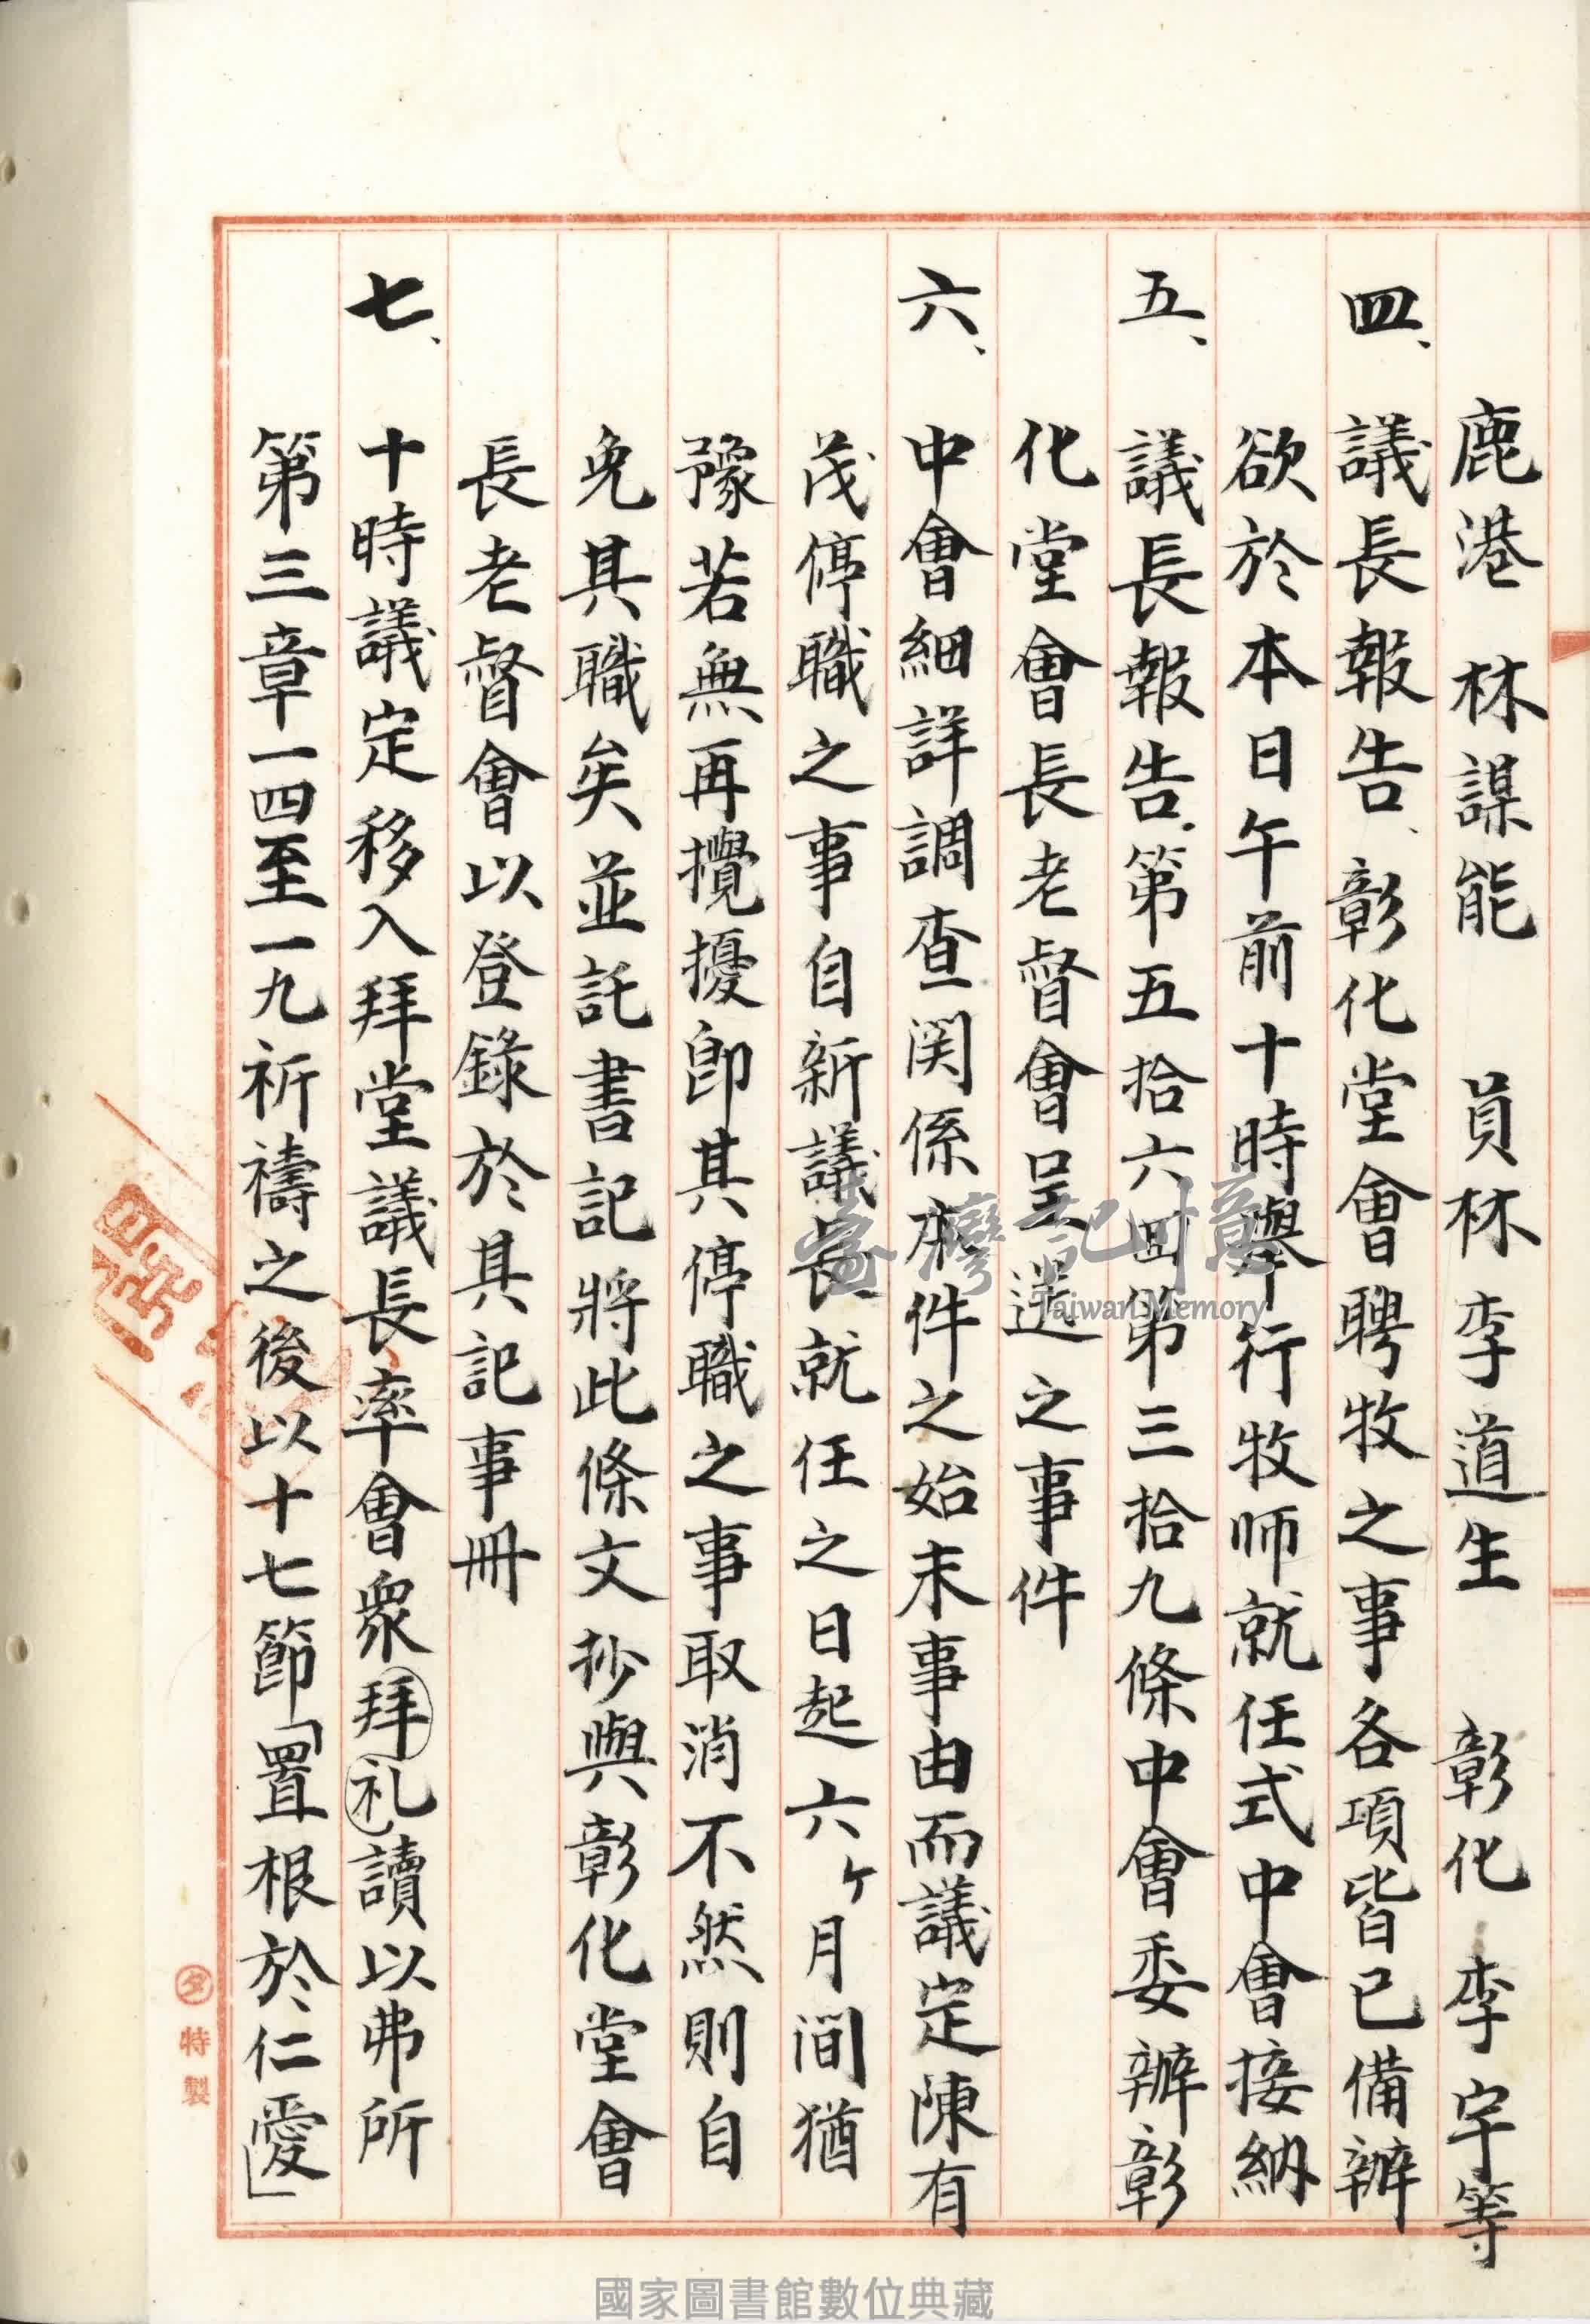 鹿港 林謀能 員林 李道生 彰化 李宇等
四、議長報告、彰化堂會聘牧之事各項皆已備辦
欲於本日午前十時舉行牧师就任式中會接納
五、議長報告、第五拾六回第三拾九條中會委辦彰
化堂會長老督會呈送之事件
六、中會細詳調查関係本件之始末事由而議定陳有
茂停職之事自新議長就任之日起六ケ月间猶
豫若無再攪擾卽其停職之事取消不然則自
免其職矣並託書記將此條文抄與彰化堂會
長老督會以登錄於其記事冊
七、十時議定移入拜堂議長率會衆拜礼讀以弗所
第三章一四至一九祈禱之後以十七節「置根於仁愛」
特製
臺灣記憶
Taiwan Memory
國家圖書館數位典藏